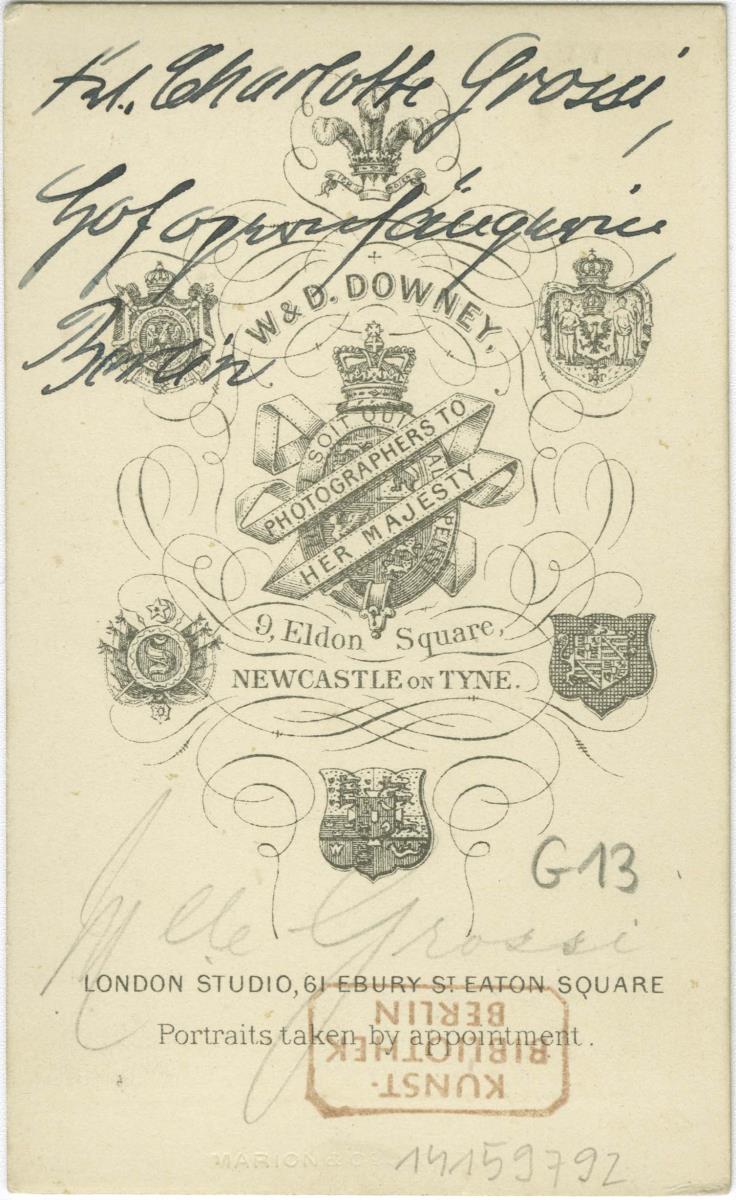 Frl. Charlotte Grossi,
Hofopernsängerin,
Berlin
W & D. DOWNEY,
SOIT QUI
MAL
PENSE
PHOTOGRAPHERS TO
HER MAJESTY
9, Eldon Square,
NEWCASTLE ON TYNE.
G13
Mlle Grossi
LONDON STUDIO, 61 EBURY ST EATON SQUARE
Portraits taken by appointment.
KUNST-
BIBLIOTHEK
BERLIN
MARION & Co
14159792